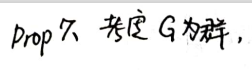 Prop 7. 考虑 G为群,